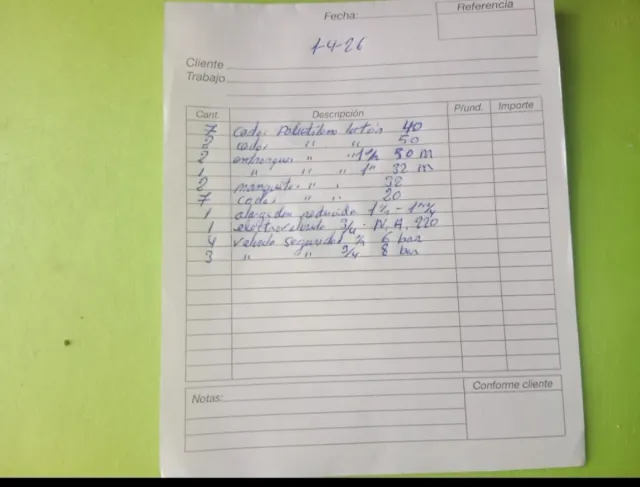 Fecha:
Referencia
1-4-26
Cliente
Trabajo
Cant. Descripción P/und. Importe
7 codos Polietileno laton 40
2 codos " " 50
2 " " 50 M
1 " " " 1" 32 M
2 manguitos " " 32
7 codos " " 20
1 reducida 1
1 electrovalvula 3/4 - N.A. 220
4 valvula seguridad 3/4 6 bar
3 " " 3/4 8 bar
Notas:
Conforme cliente